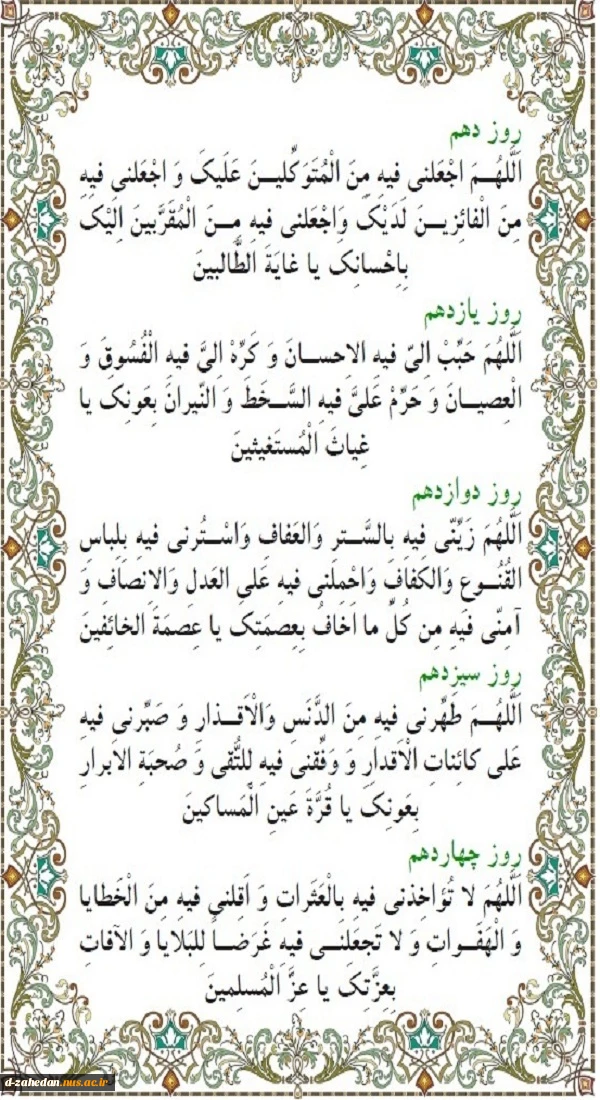 روز دهم
اَللهُـمَ اجْعَلنی فیهِ مِنَ الْمُتَوَکِّلیـنَ عَلَیکَ وَ اجْعَلنی فیهِ
مِنَ الْفائِزیـنَ لَدَیْکَ وَاجْعَلنی فیهِ مِـنَ الْمُقَرَّبینَ اِلَیْکَ
بِاِحْسانِکَ یا غایَةَ الطّالبینَ
روز یازدهم
اَللّهُمَ حَبِّبْ اِلیّ فیهِ الاحسـانَ وَ کَرِّهْ الیَّ فیهِ الْفُسُوقَ وَ
الْعِصیـانَ وَ حَرِّمْ عَلَیَّ فیهِ السَّـخَطَ وَ النّیرانَ بِعَونِکَ یا
غِیاثَ الْمُستَغیثینَ
روز دوازدهم
اَللّهُمَ زَیِّنّی فیهِ بالسَّـترِ وَالعَفافِ وَاسْـتُرنی فیهِ بِلِباسِ
القُنُـوعِ وَالکِفافَ وَاحْمِلنی فیهِ عَلیِ العَدلِ وَالانصاف وَ
آمِنّی فیهِ مِن کُلِّ ما اَخافُ بِعِصمَتِکَ یا عِصمَةَ الخائِفینَ
روز سیزدهم
اَللّهُـمَ طَهِّرنی فیهِ مِنَ الدَّنَسِ وَالْاَقـذارِ وَ صَبِّرنی فیهِ
عَلی کائِناتِ الْاَقدارِ وَ وَفِّقنی فیهِ للتُّقی وَ صُحبَةِ الاَبرارِ
بِعَونِکَ یا قُرَّةَ عَینِ الْمَساکینَ
روز چهاردهم
اَللّهُمَ لا تُؤاخِذنی فیهِ بِالْعَثَراتِ وَ اَقِلنی فیهِ مِنَ الْخَطایا
وَ الْهَفَـواتِ وَ لا تَجعَلنَـی فیهِ غَرَضـاً لِلبَلایا وَ الآفاتِ
بِعِزَّتِکَ یا عِزَّ الْمُسلِمینَ
d-zahedan.nus.ac.ir